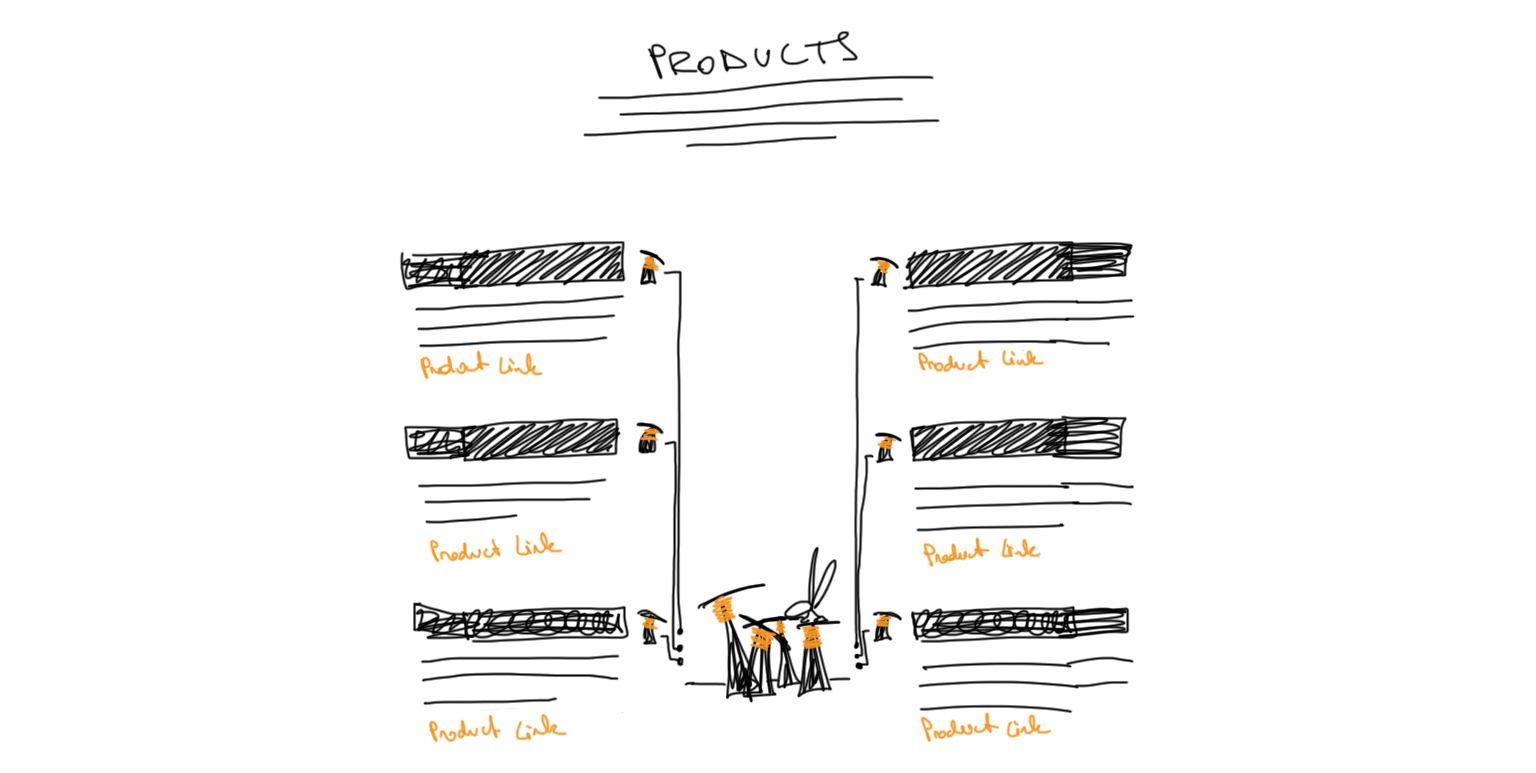 PRODUCTS
Product Link
Product Link
Product Link
Product Link
Product Link
Product Link